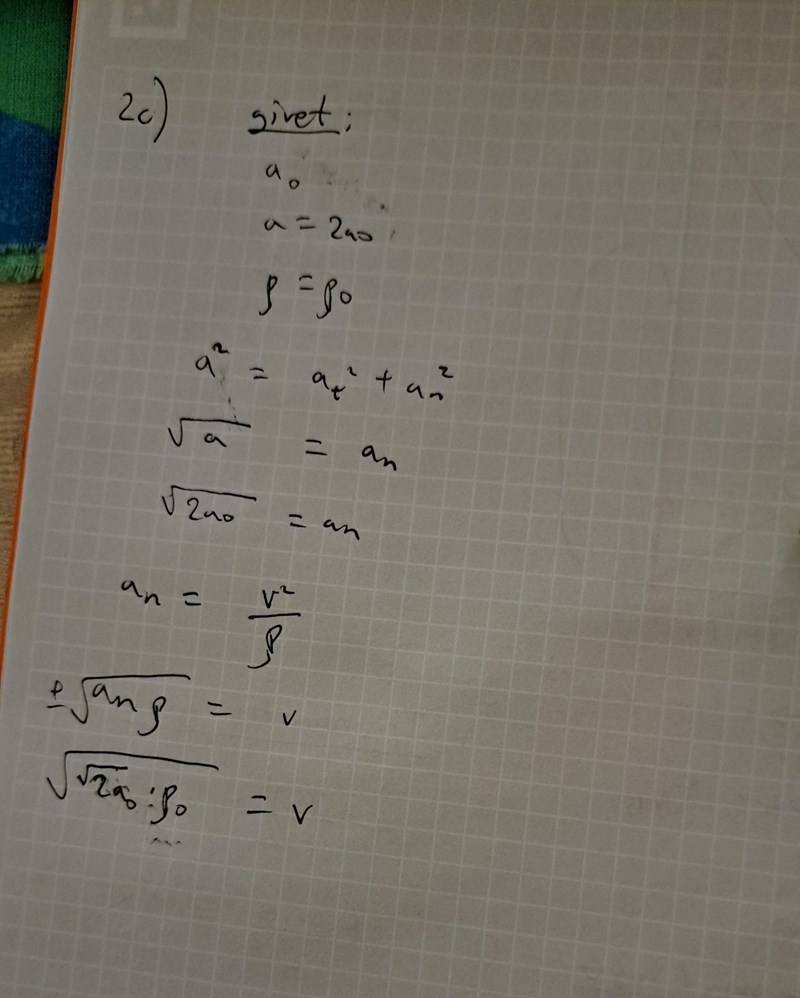 2c) givet:
a₀
a = 2a₀
ρ = ρ₀
a² = aₜ² + aₙ²
√a = aₙ
√2a₀ = aₙ
aₙ = v²/ρ
±√aₙρ = v
√√2a₀·ρ₀ = v